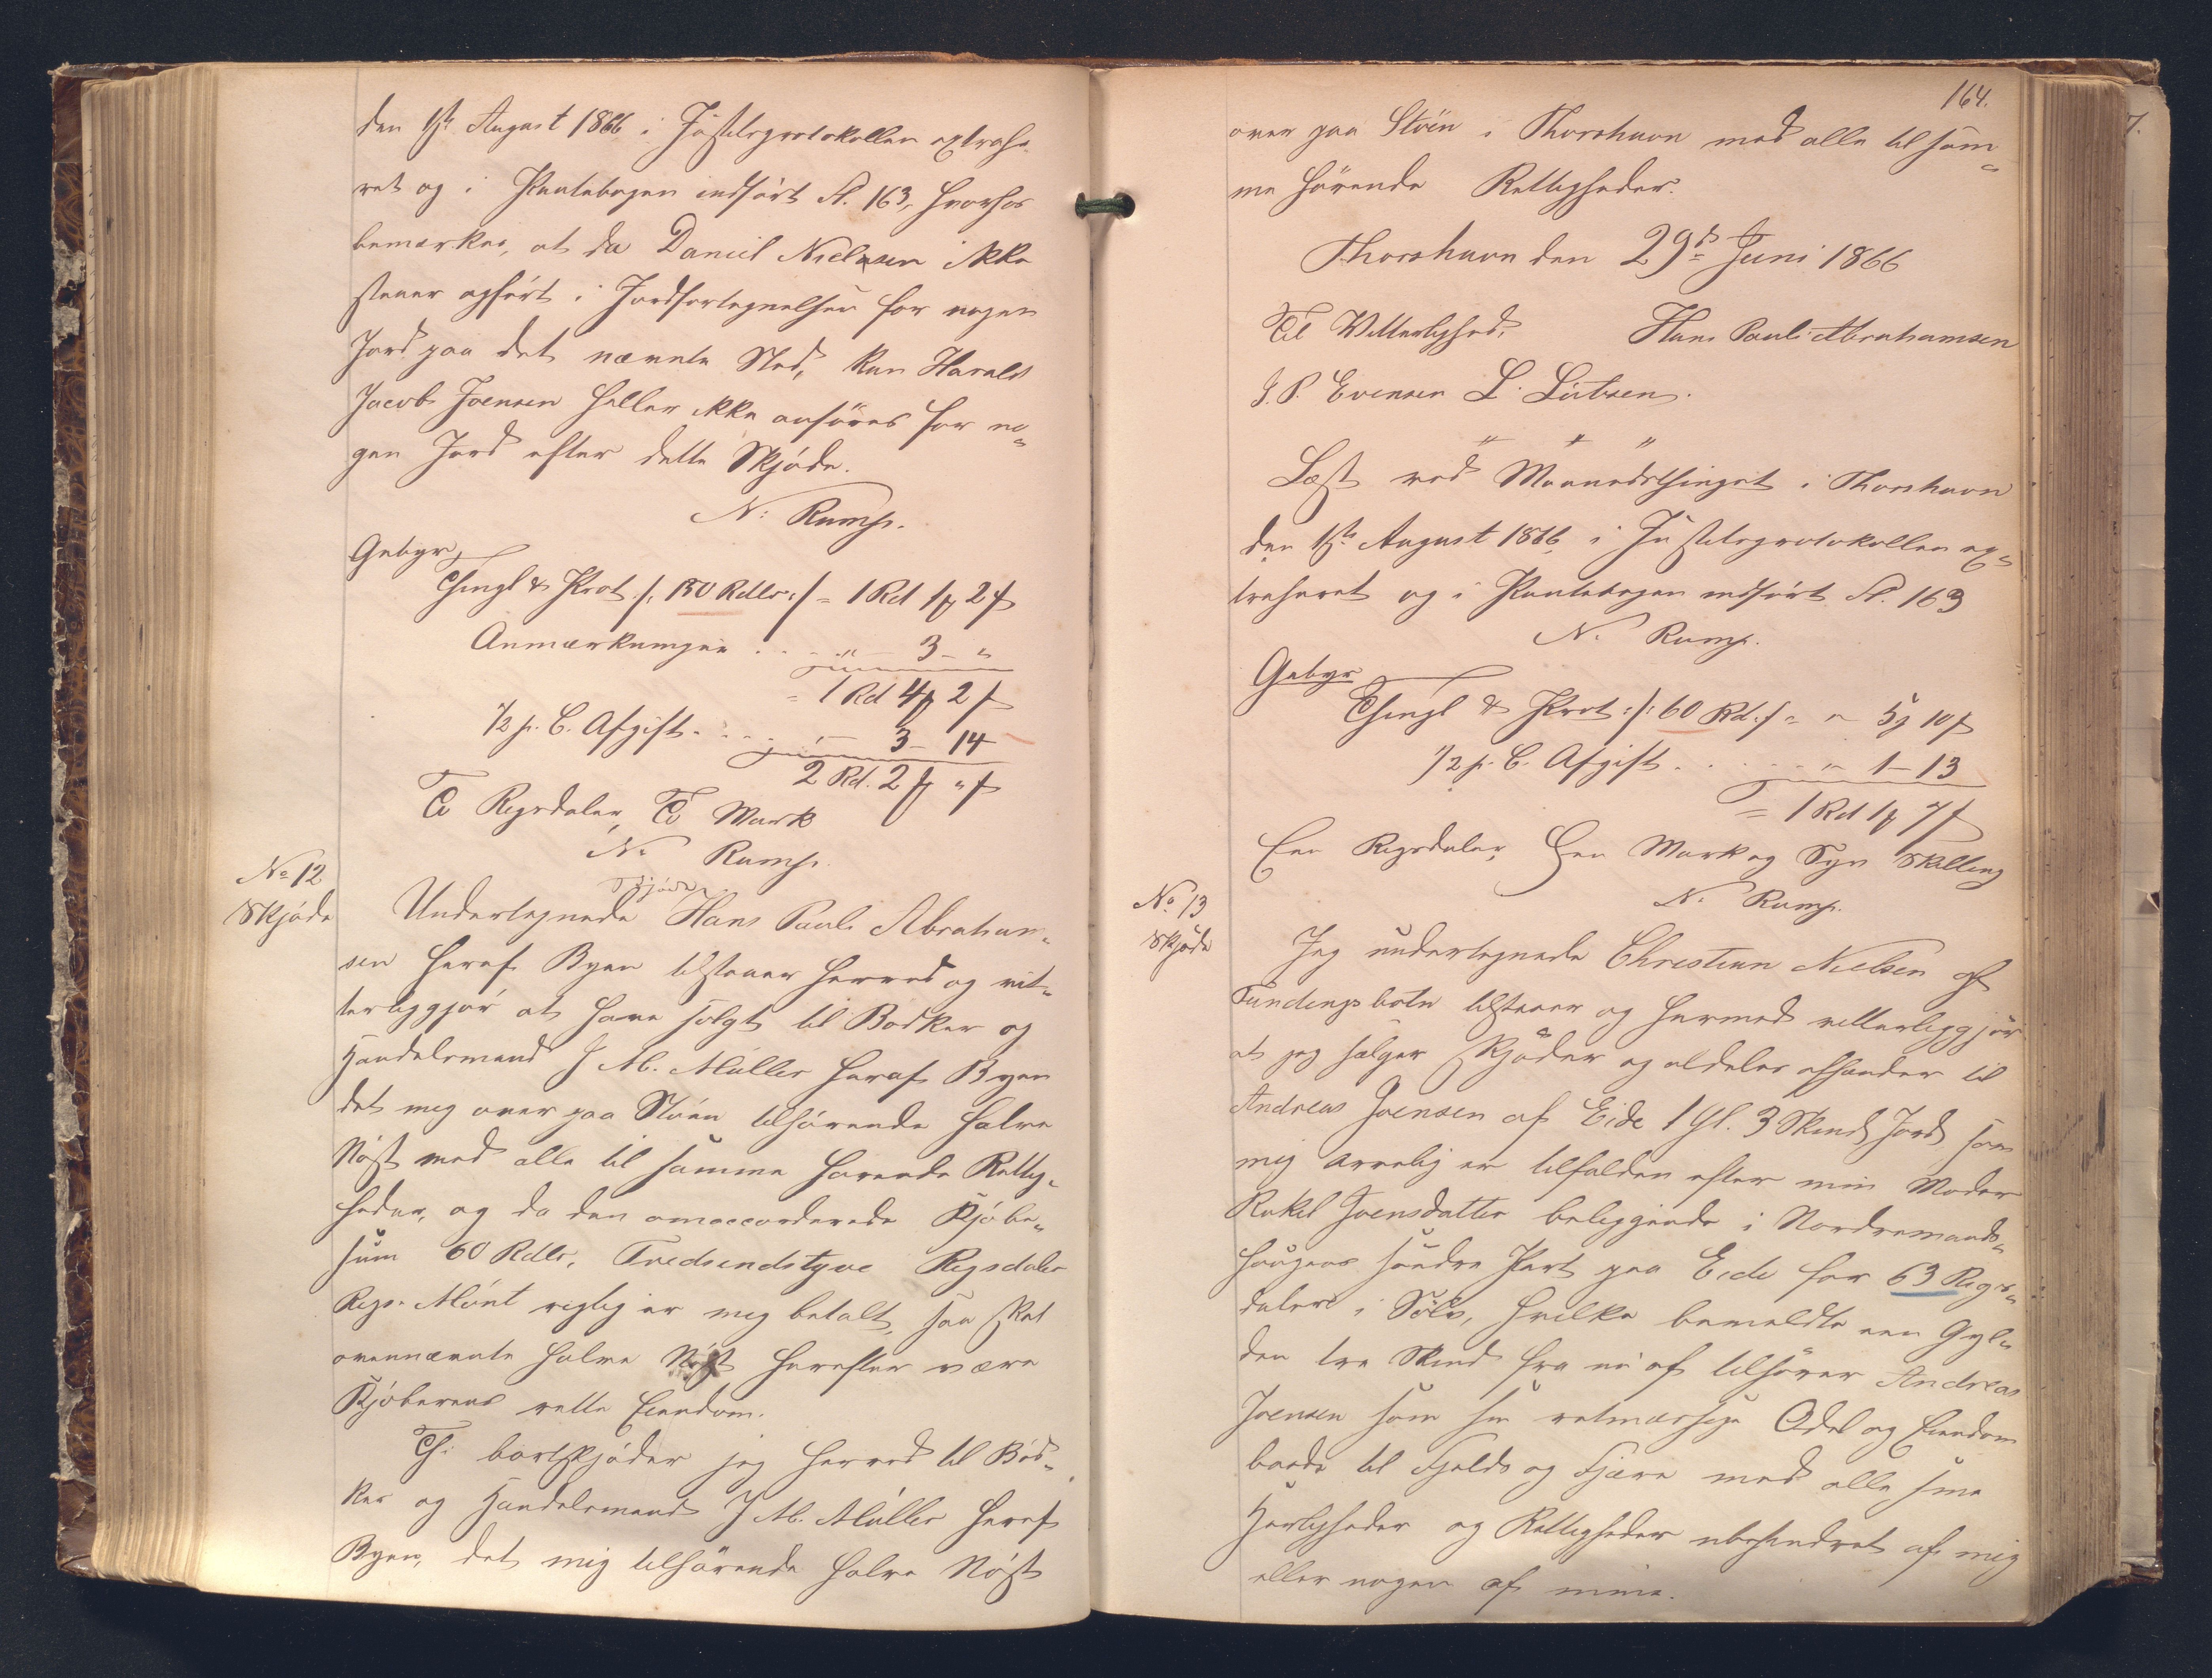 den 1ste August 1866 i Justitsprotokollen extrahe-
ret og i Pantebogen indført Fl. 163, hvorhos
bemærkes, at da Daniel Nielssen ikke
staaer opført i Jordfortegnelsen for nogen
Jord paa det nævnte Sted, kan Harald
Jacob Joensen heller ikke anføres for no-
gen Jord efter dette Skjøde.
N: Rump.
Gebyr
Thingl & Prot. /: 150 Rdlr :/ = 1 Rd 1 ₻ 2 ß
Anmærkningen . . . " — 3 - "
= 1 Rd 4 ₻ 2 ß
1/2 p. C. Afgift . . . . " — 3 - 14
2 Rd. 2 ₻ " ß
To Rigsdaler, To Mark
N: Rump.
No 12
Skjøde
Skjøde
Undertegnede Hans Pauli Abraham-
sen heraf Byen tilstaaer herved og vit-
terliggjør at have solgt til Bødker og
Handelsmand J M. Müller heraf Byen
det mig over paa Støen tilhørende halve
Nøst med alle til samme hørende Rettig-
heder, og da den omaccorderede Kjøbe-
sum 60 Rdlr, Tredsindstyve Rigsdaler
Rigs-Mönt rigtig er mig betalt, saa skal
ovennævnte halve Nøst herefter være
Kjøberens rette Eiendom.
Thi bortskjøder jeg herved til Bød-
ker og Handelsmand J M. Müller heraf
Byen, det mig tilhørende halve Nøst
164.
over paa Støen i Thorshavn med alle til sam-
me hørende Rettigheder.
Thorshavn den 29de Juni 1866
Til Vitterlighed: Hans Pauli Abrahamsen
J. P. Evensen L. Lützen.
" + "
Læst ved Maanedsthinget i Thorshavn
den 1ste August 1866, i Justitsprotokollen ex-
traheret og i Pantebogen indført Fl. 163
N. Rump.
Gebyr
Thingl & Prot. /: 60 Rd. :/ = " 5 ₻ 10 ß
1/2 p. C. Afgift . . . . . " 1 - 13
= 1 Rd 1 ₻ 7 ß
Een Rigsdaler, Een Mark og Syv Skilling
N. Rump.
No 13
Skjøde
Jeg undertegnede Christian Nielsen af
Fundingsbotn tilstaaer og hermed vitterliggjør
at jeg sælger skjøder og aldeles afhænder til
Andreas Joensen af Eide 1 Gl. 3 Skind Jord, som
mig arvelig er tilfalden efter min Moder
Rakel Joensdatter beliggende i Nordremands-
haugens søndre Part paa Eide for 63 Rigs-
daler i Sølv, hvilke bemeldte een Gyl-
den tre Skind fra nu af tilhører Andreas
Joensen som sin retmæssige Odel og Eiendom
baade til Fjelds og Fjære med alle sine
Herligheder og Rettigheder ubehindret af mig
eller nogen af mine.